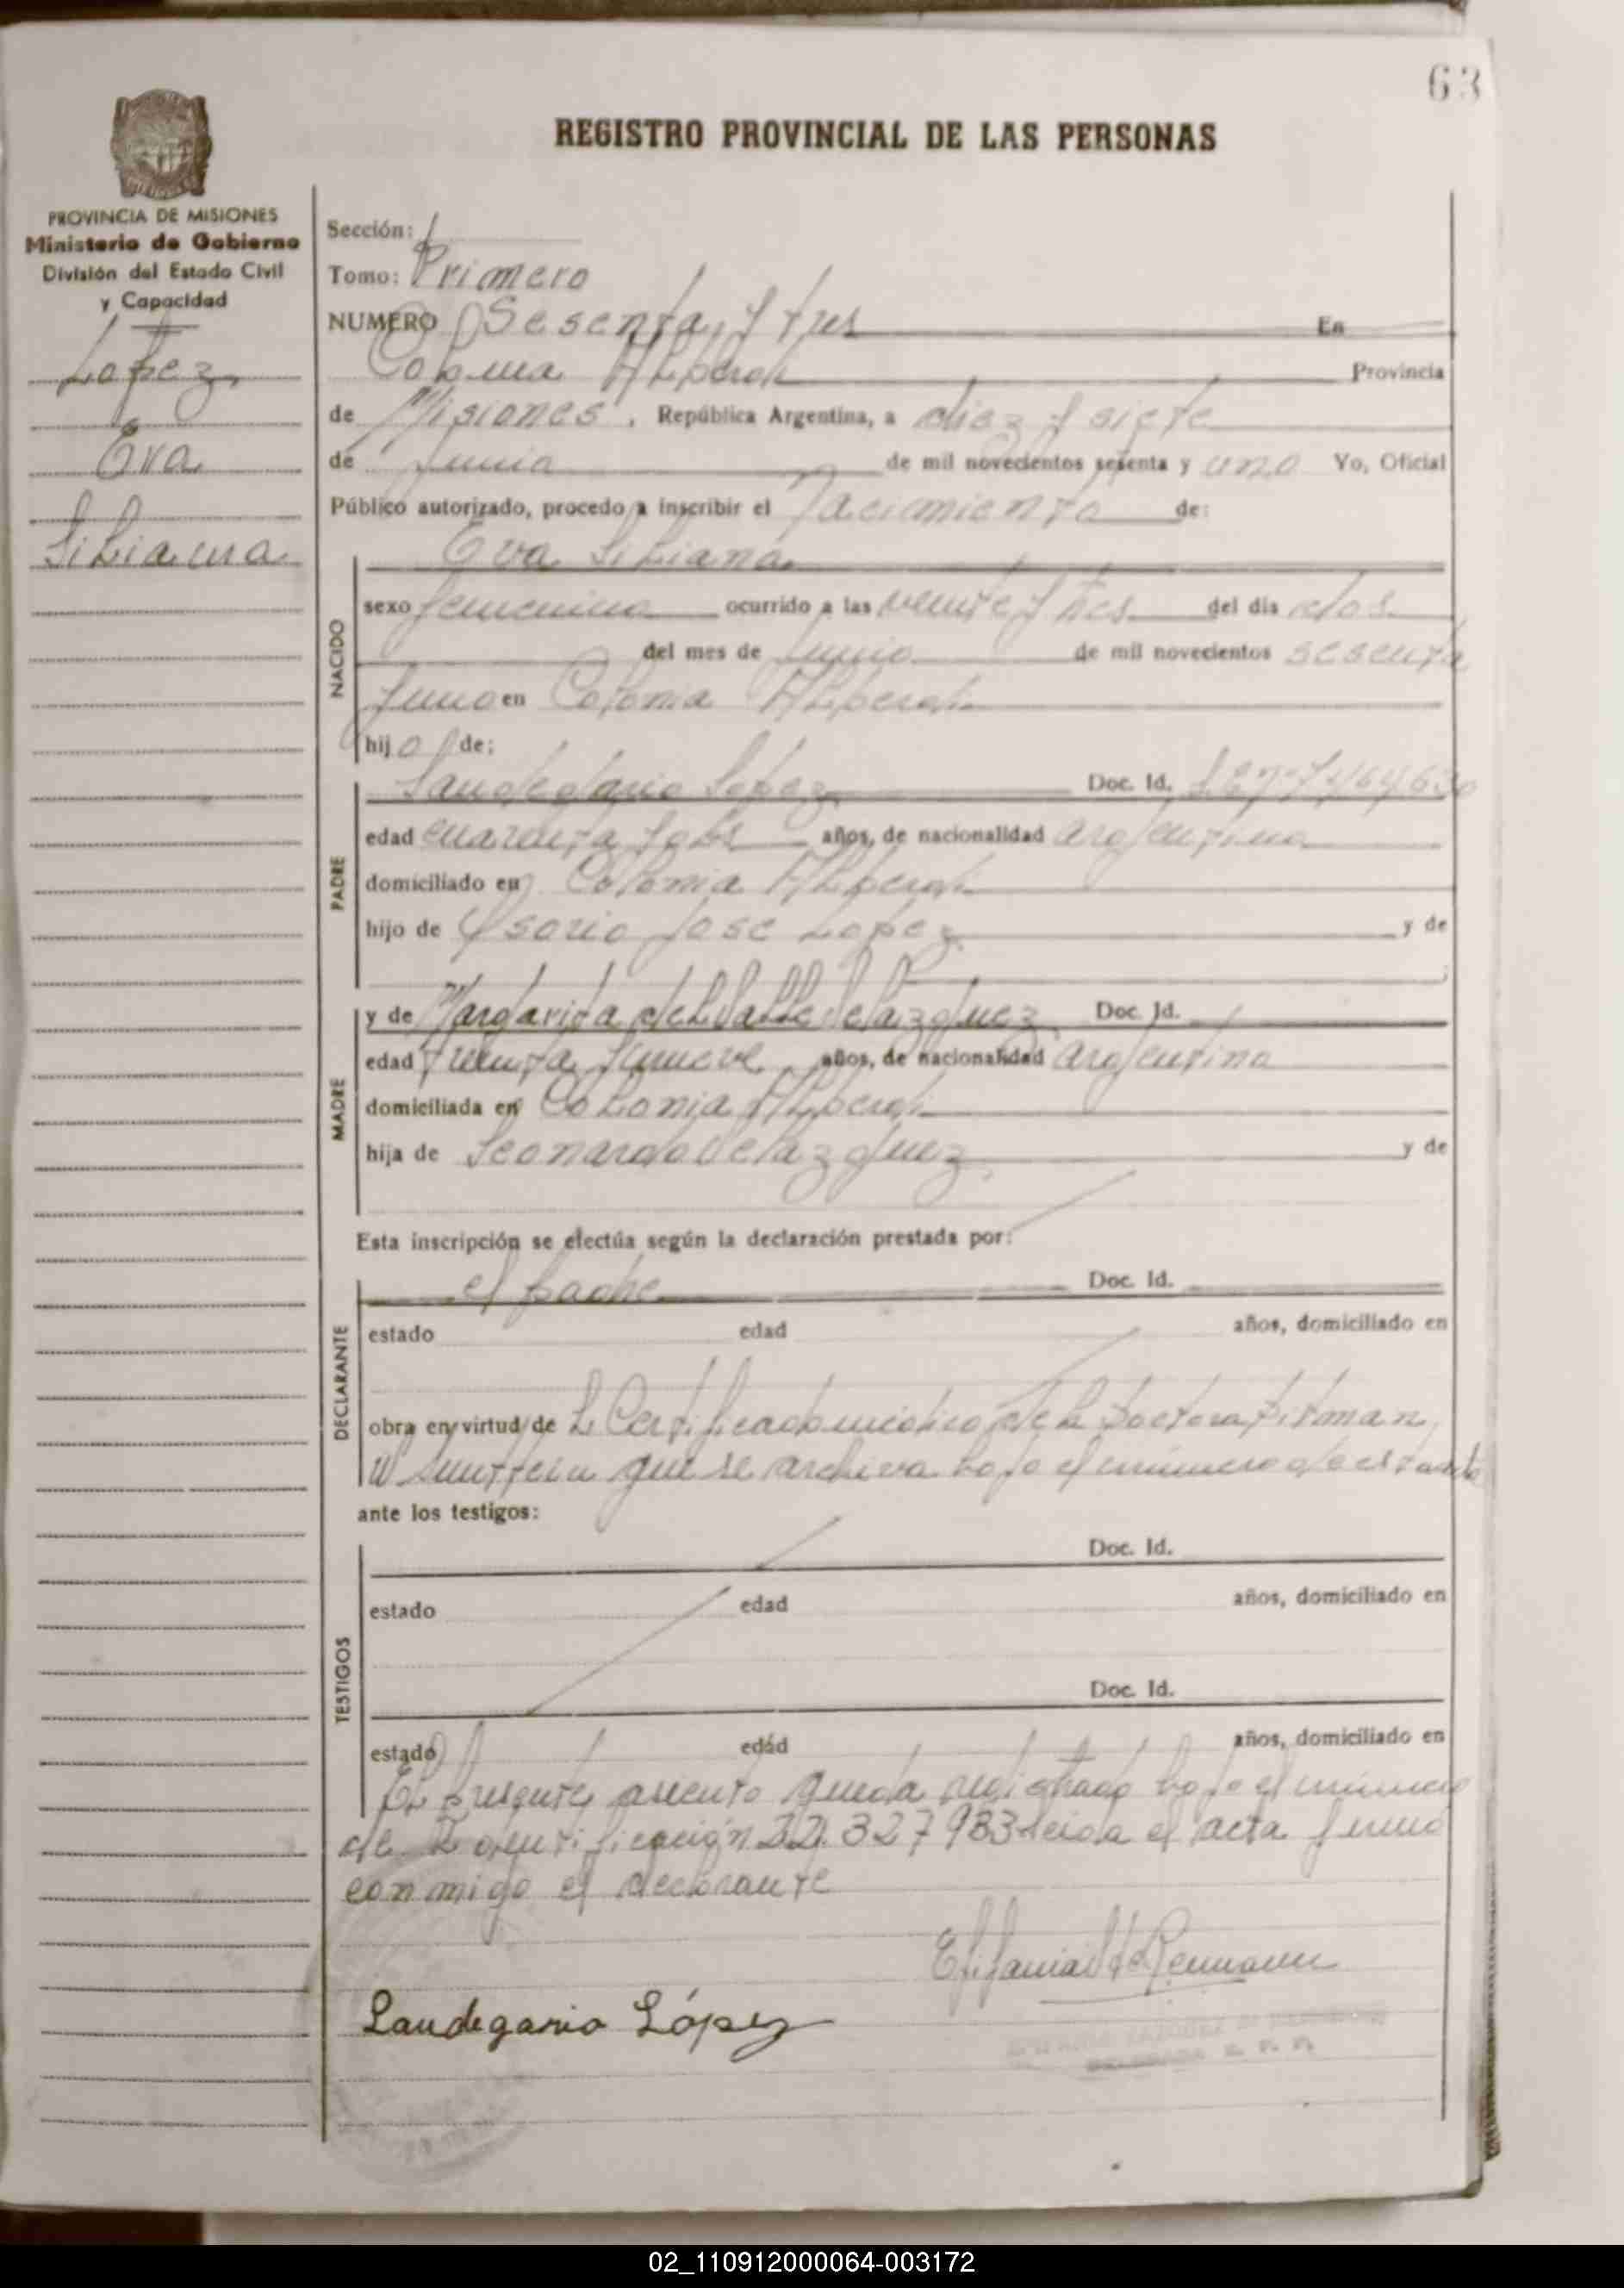 63
REGISTRO PROVINCIAL DE LAS PERSONAS
PROVINCIA DE MISIONES
Ministerio de Gobierno
División del Estado Civil
y Capacidad
Lopez
Eva
Liliana
Sección:
Tomo: Primero
NUMERO Sesenta y tres En
Colonia Alberdi Provincia
de Misiones, República Argentina, a diez y siete
de Junio de mil novecientos sesenta y uno Yo, Oficial
Público autorizado, procedo a inscribir el Nacimiento de:
NACIDO
Eva Liliana
sexo femenino ocurrido a las veinte y tres del dia dos
del mes de Junio de mil novecientos sesenta
y uno en Colonia Alberdi
hija de:
PADRE
Laudegario Lopez Doc. Id.
edad cuarenta y años, de nacionalidad argentina
domiciliado en Colonia Alberdi
hijo de Jose Lopez y de
MADRE
y de Margarita del Valle Velazquez Doc. Id.
edad treinta y nueve años, de nacionalidad argentina
domiciliada en Colonia Alberdi
hija de Leonardo Velazquez y de
Esta inscripción se efectúa según la declaración prestada por:
DECLARANTE
el padre Doc. Id.
estado edad años, domiciliado en
obra en virtud de L Certificado medico de la Doctora
que se archiva bajo el numero de esta
ante los testigos:
TESTIGOS
Doc. Id.
estado edad años, domiciliado en
Doc. Id.
estado edad años, domiciliado en
El presente asiento queda registrado bajo el numero
de Identificación 327983 leida el acta firmó
conmigo el declarante
Laudegario López
02_110912000064-003172